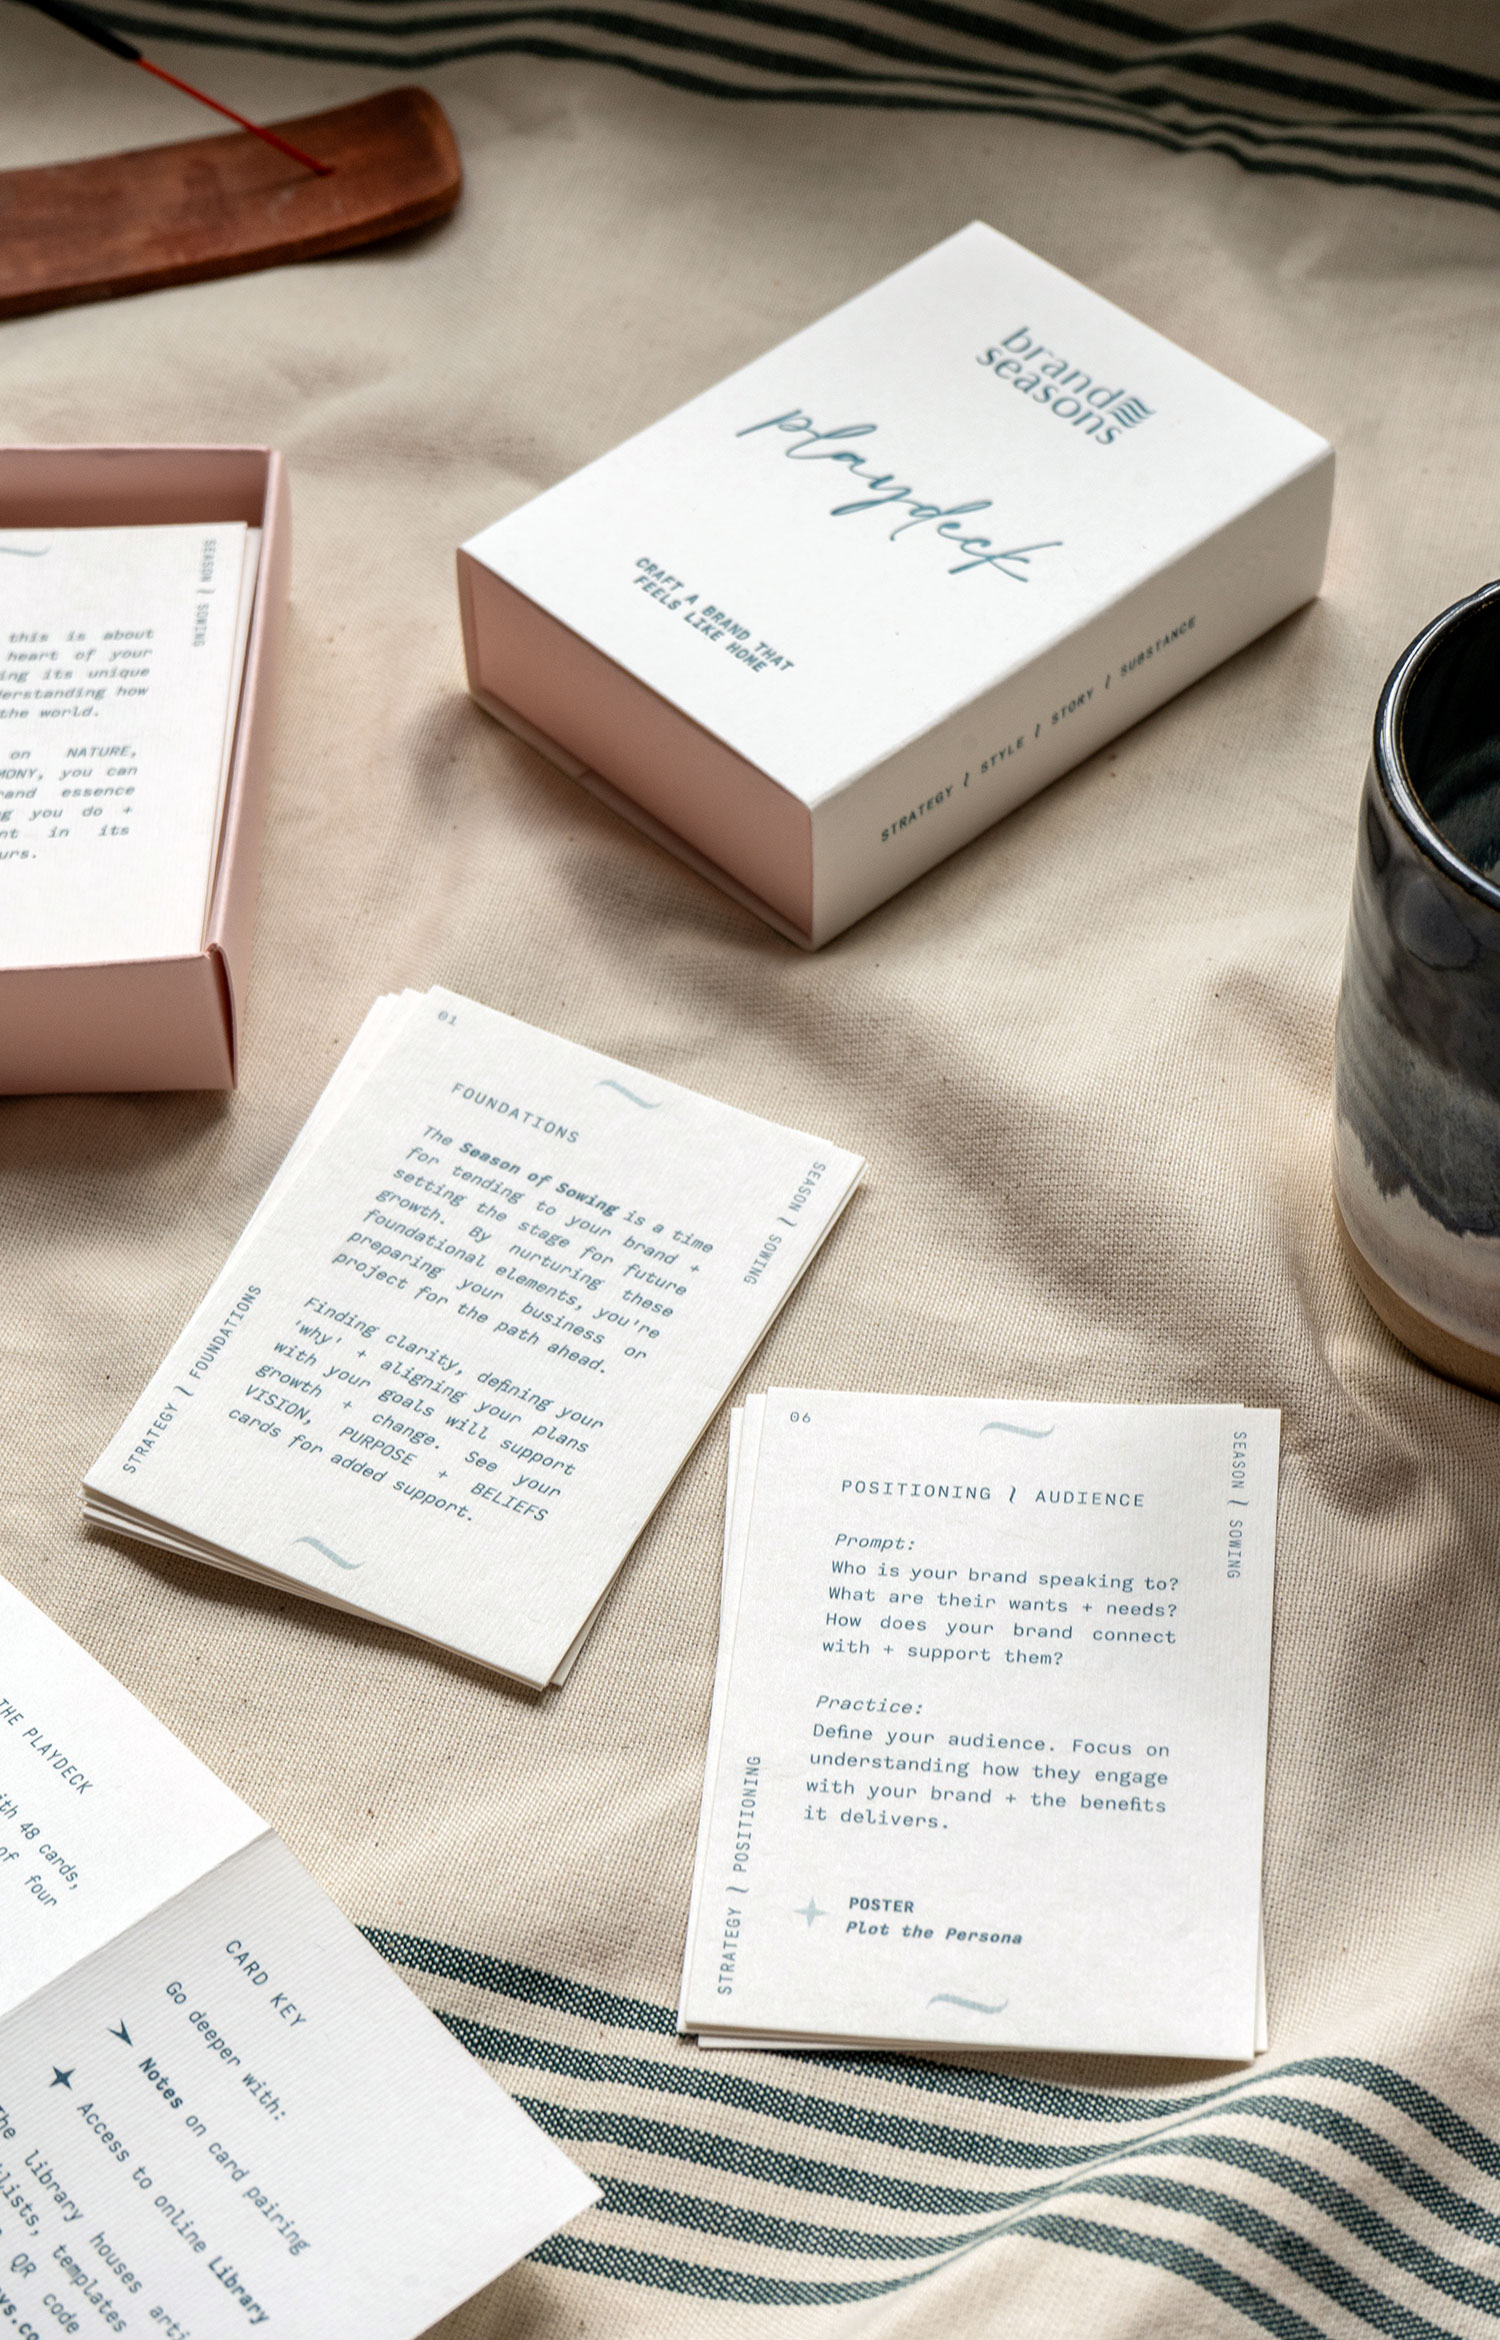 brand
seasons
playdeck
CRAFT A BRAND THAT
FEELS LIKE HOME
STRATEGY ~ STYLE ~ STORY ~ SUBSTANCE
SEASON ~ SOWING
this is about
heart of your
its unique
how
the world.
on NATURE,
you can
essence
you do +
in its
01
FOUNDATIONS
The Season of Sowing is a time
for tending to your brand +
setting the stage for future
growth. By nurturing these
foundational elements, you're
preparing your business or
project for the path ahead.
Finding clarity, defining your
'why' + aligning your plans
with your goals will support
growth + change. See your
VISION, PURPOSE + BELIEFS
cards for added support.
SEASON ~ SOWING
STRATEGY ~ FOUNDATIONS
06
POSITIONING ~ AUDIENCE
Prompt:
Who is your brand speaking to?
What are their wants + needs?
How does your brand connect
with + support them?
Practice:
Define your audience. Focus on
understanding how they engage
with your brand + the benefits
it delivers.
POSTER
Plot the Persona
SEASON ~ SOWING
STRATEGY ~ POSITIONING
THE PLAYDECK
48 cards,
of four
CARD KEY
Go deeper with:
Notes on card pairing
Access to online Library
The library houses
templates
QR code